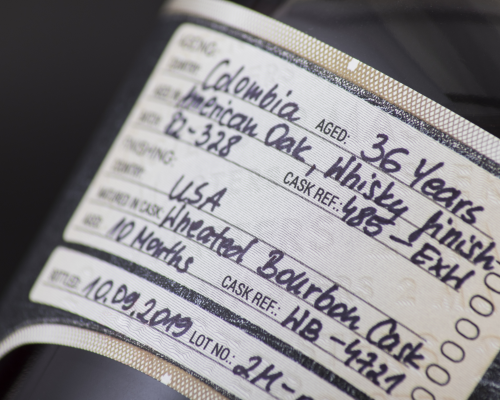 AGEING:
COUNTRY: Colombia AGED: 36 Years
AGED IN: American Oak, Whisky finish-
BATCH: 82-328 CASK REF.: 485-EXH
FINISHING:
COUNTRY: USA
MATURED IN CASK: Wheated Bourbon Cask
AGED: 10 Months CASK REF.: WB-4721
BOTTLED: 10.09.2019 LOT NO.: